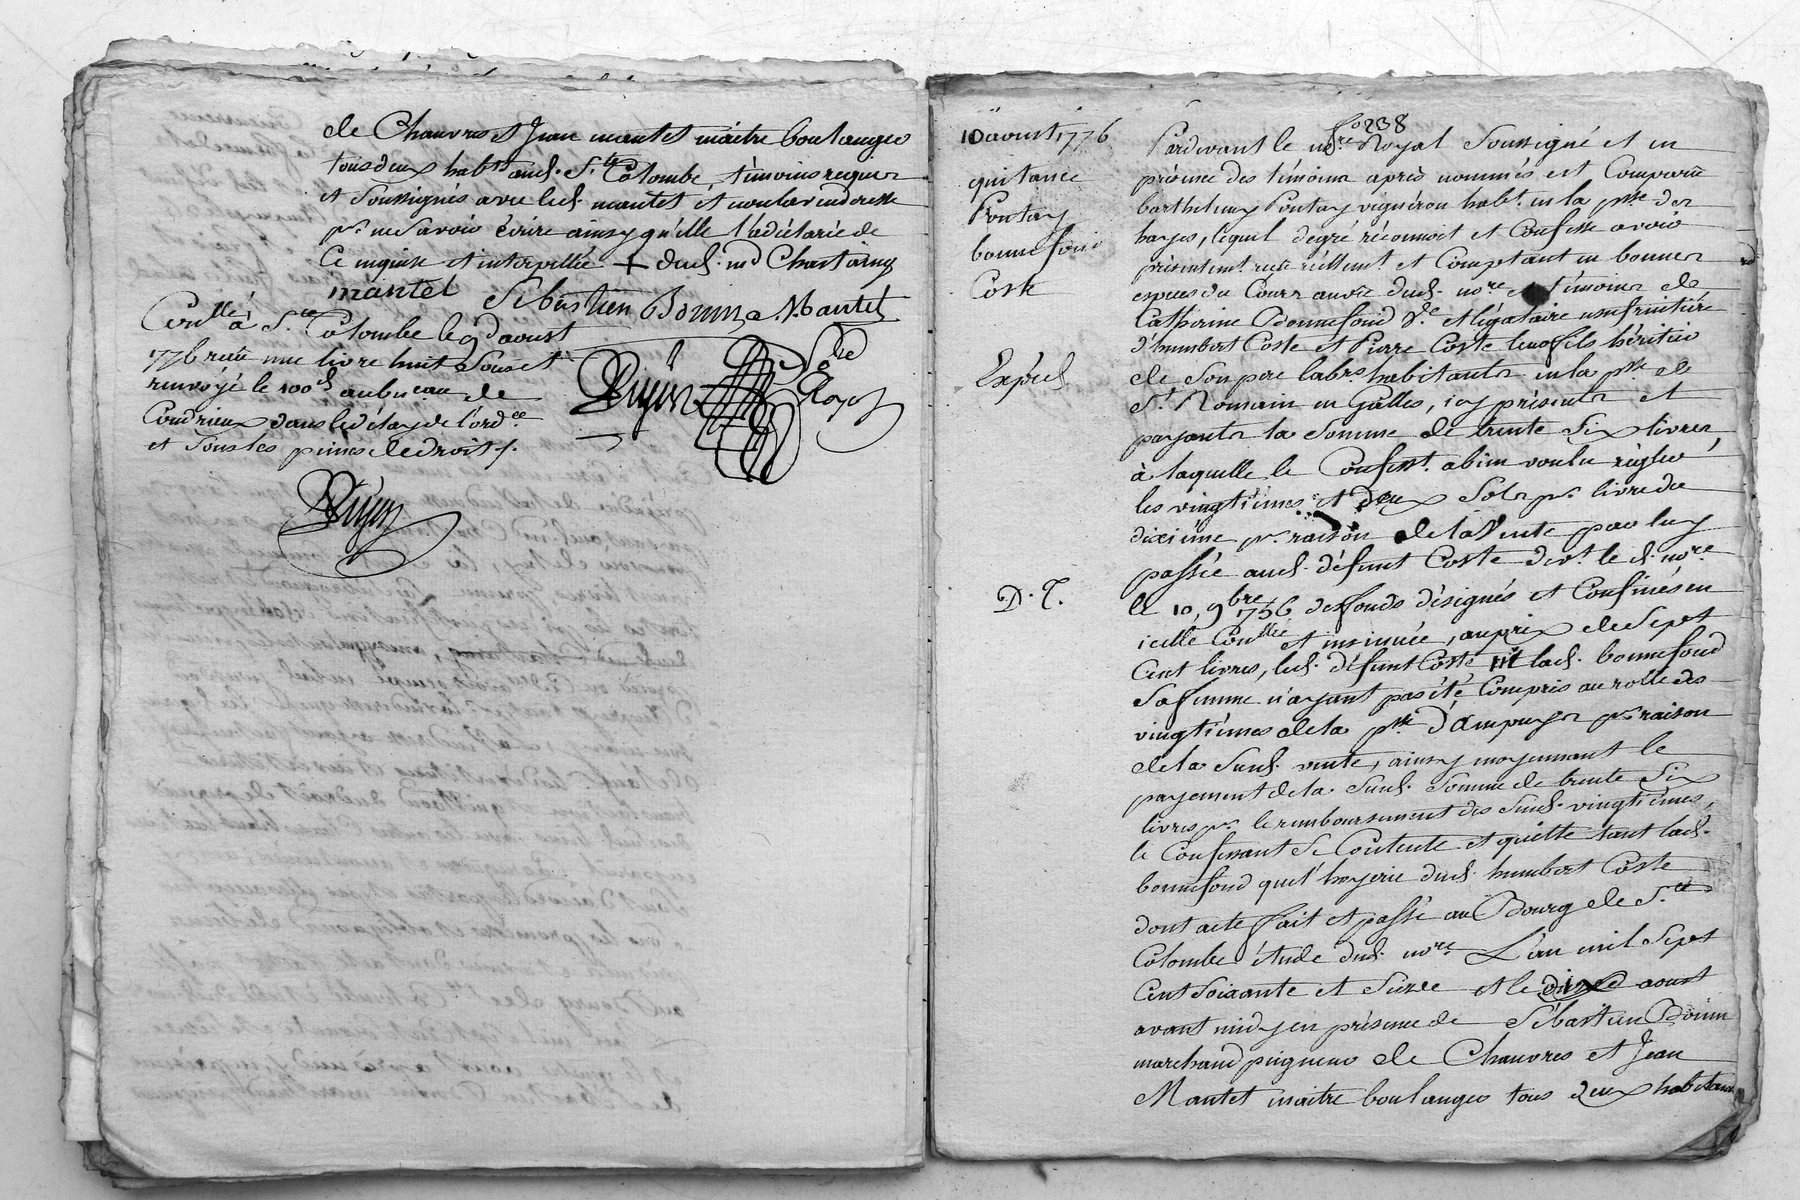 de Chanvres et Jean mantet maitre boulanger
tous deux habts audt. Ste Colombe, témoins requis
et Soussignés avec ledt. mantet et non la vendresse
pr. ne Savoir écrire ainsy qu'elle l'a déclaré de
ce enquise et interpellée + dudt. md Chartoiny
mantet Sébastien Boiron Mantet
Conllé à Ste Colombe le 9 d'aoust
1776 reçu une livre huit Sous et
renvoyé le 100e au bureau de
Condrieux dans le délay de l'ordce
et Sous les peines de droit.
Duyon Nore Royal
Duyon
10 aoust 1776
quitance
Pontay
bonnefond
Coste
Expéd.
D. T.
fo 238
Pardevant le nore Royal Soussigné et en
présence des témoins après nommés est Comparu
barthelemy Pontay vigneron habt. en la psse des
hayes, lequel de gré reconnoit et Confesse avoir
présentemt. reçu réellemt. et Comptant en bonnes
espèces du Cours au vû dudt. nore et témoins de
Catherine Bonnefond Ve. et légataire usufruitière
d'humbert Coste et Pierre Coste leur fils héritier
de Son pere labrs. habitants en la psse de
St. Romain en Galles, icy présents et
payants la Somme de trente Six livres,
à laquelle le Confesst. a bien voulu regler
les vingtièmes et deux Sols pr. livre du
dixième pr. raison de la Vente par luy
passée audt. défunt Coste devt. le dt. nore
le 10 9bre 1756 des fonds désignés et Confinés en
icelle Conllée et insinuée, au prix de Sept
Cent livres, ledt. défunt Coste ni ladt. bonnefond
Sa femme n'ayant pas été Compris au rolle des
vingtièmes de la psse d'Ampuys pr. raison
de la Susdt. vente, ainsy moyennant le
payement de la Susdt. Somme de trente Six
livres pr. le remboursement des Susdt. vingtièmes,
le Confessant Se Contente et quitte tant ladt.
bonnefond que l'hoyerie dudt. humbert Coste
dont acte fait et passé au Bourg de Ste
Colombe étude dudt. nore L'an mil Sept
Cent Soixante et Seize et le dix aoust
avant midy en présence de Sébastien Boiron
marchand peigneur de Chanvres et Jean
Mantet maitre boulanger tous deux habitans